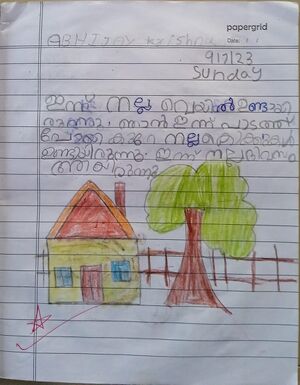 papergrid
Date: / /
ABHIJAY Krishna
9/7/23
Sunday
ഇന്ന് നല്ല വെയിൽ ഉണ്ടായി
രുന്നു. ഞാൻ ഇന്ന് പാടത്ത്
പോയി കുറെ നല്ല
ഉണ്ടായിരുന്നു. ഇന്ന് നല്ല ദിവസം
ആയിരുന്നു